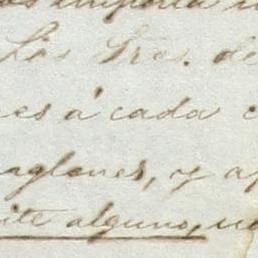 importa
Los Sres. de
es á cada
aglones, y a
ite alguno,